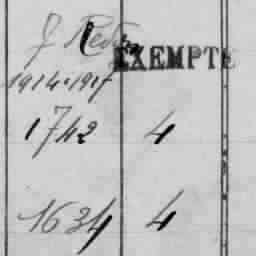 EXEMPTE
1914-1917
1742 4
1634 4